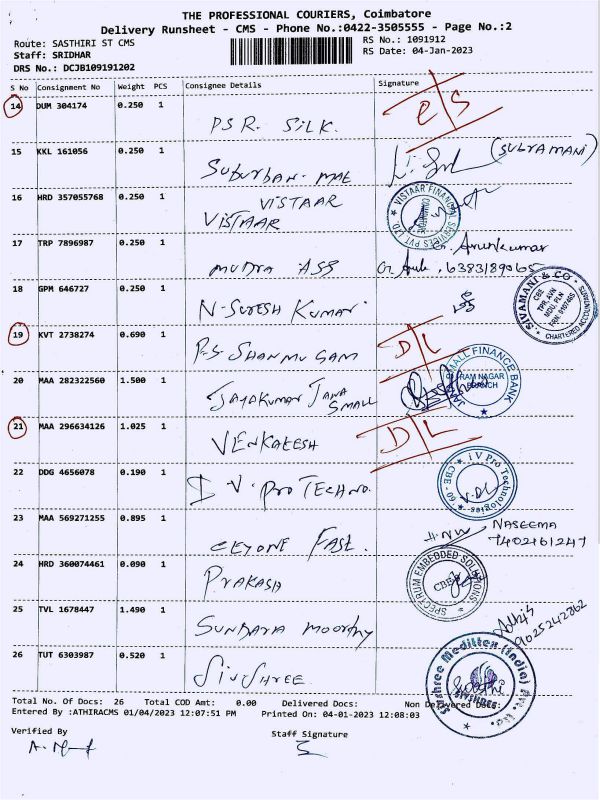 THE PROFESSIONAL COURIERS, Coimbatore
Delivery Runsheet - CMS - Phone No.:0422-3505555 - Page No.:2
Route: SASTHIRI ST CMS
RS No.: 1091912
Staff: SRIDHAR
RS Date: 04-Jan-2023
DRS No.: DCJB109191202
S No Consignment No Weight PCS Consignee Details Signature
14 DUM 304174 0.250 1
PSR. SILK.
15 KKL 161056 0.250 1
Suburban. (SULYAMANI)
16 HRD 357055768 0.250 1
VISTAAR
VISTAAR
VISTAAR FINANCIAL SERVICES PVT LTD.
17 TRP 7896987 0.250 1
Arunkumar
mudra 6383189065
18 GPM 646727 0.250 1
N-SURESH KUMAR
SIVAMANI & CO
CHARTERED ACCOUNTANTS
19 KVT 2738274 0.690 1 D/L
P.S. SHANMUGAM
20 MAA 282322560 1.500 1
JAYAKUMAR JANA SMALL
SMALL FINANCE BANK
RAM NAGAR BRANCH
21 MAA 296634126 1.025 1 D/L
VENKATESH
22 DDG 4656078 0.190 1
I V. PRO TECHNO.
I V Pro Technologies
CBE - 60
23 MAA 569271255 0.895 1
FAST.
NASEEMA
7402161247
24 HRD 360074461 0.090 1
PRAKASH
SPECTRUM EMBEDDED SOLUTIONS
CBE
25 TVL 1678447 1.490 1
SUNDARA MOORTHY
9025242862
26 TUT 6303987 0.520 1
SIVSHREE.
Meditten (India) Pvt. Ltd.
Total No. Of Docs: 26 Total COD Amt: 0.00 Delivered Docs: Non Delivered Docs:
Entered By :ATHIRACMS 01/04/2023 12:07:51 PM Printed On: 04-01-2023 12:08:03
Verified By Staff Signature